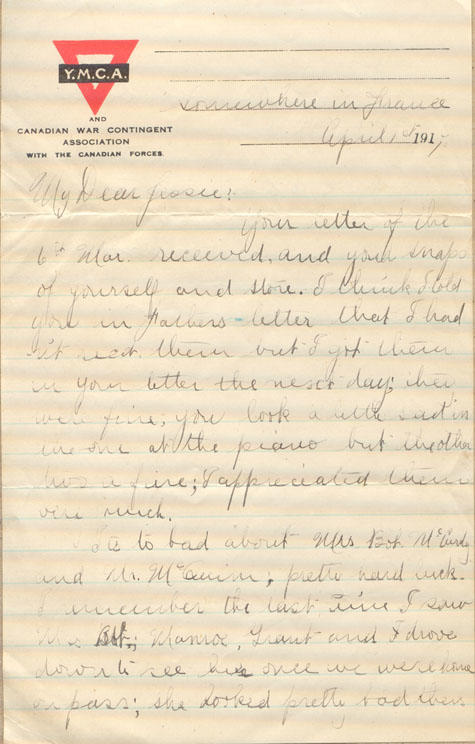 Y.M.C.A.
AND
CANADIAN WAR CONTINGENT
ASSOCIATION
WITH THE CANADIAN FORCES.
Somewhere in France
April 1st 1917
My Dear Jessie:
Your letter of the
6th Mar. received, and your snaps
of yourself and store. I think I told
you in Fathers letter that I had
n't rect. them but I got them
in your letter the next day; they
were fine; you look a little sad in
the one at the piano but the other
was a fine; I appreciated them
very much.
Its to bad about Mrs Bob McCurdy
and Mr. McCuinn; pretty hard luck.
I remember the last time I saw
Mrs Monroe, Grant and I drove
down to see her once we were home
on pass; she looked pretty bad then